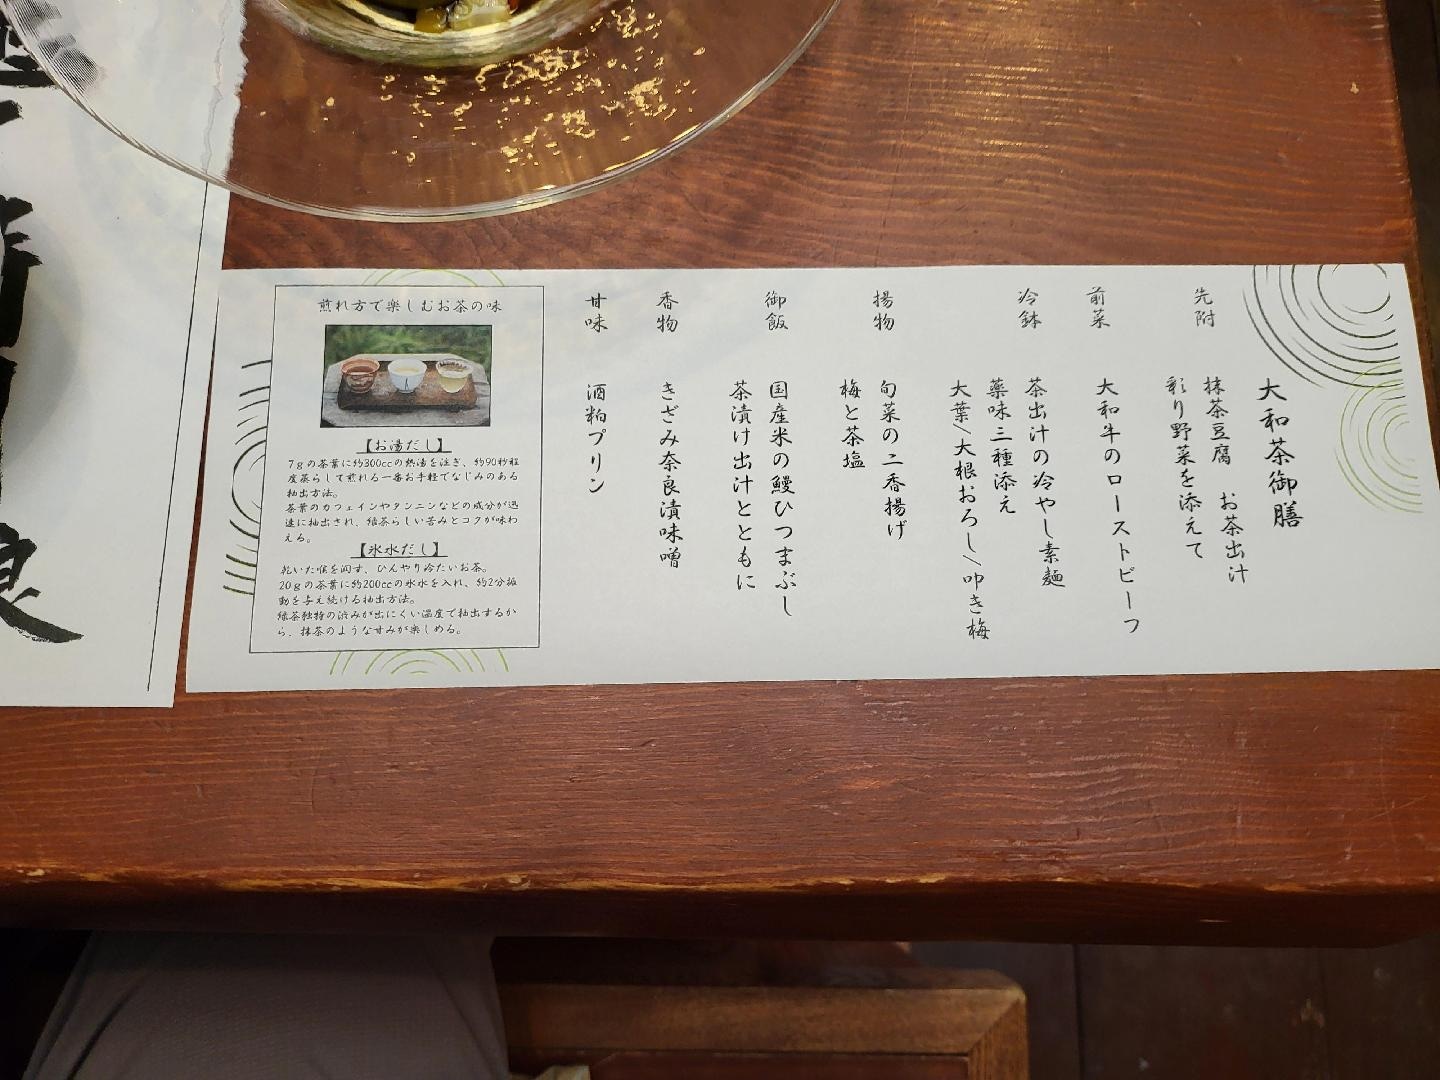 大和茶御膳
先附
抹茶豆腐 お茶出汁
彩り野菜を添えて
前菜
大和牛のローストビーフ
冷鉢
茶出汁の冷やし素麺
薬味三種添え
大葉\大根おろし\叩き梅
揚物
旬菜の二香揚げ
梅と茶塩
御飯
国産米の鰻ひつまぶし
茶漬け出汁とともに
香物
きざみ奈良漬味噌
甘味
酒粕プリン
煎れ方で楽しむお茶の味
【お湯だし】
7gの茶葉に約300ccの熱湯を注ぎ、約90秒程
度蒸らして煎れる一番お手軽でなじみのある
抽出方法。
茶葉のカフェインやタンニンなどの成分が迅
速に抽出され、緑茶らしい苦みとコクが味わ
える。
【氷水だし】
乾いた喉を潤す、ひんやり冷たいお茶。
20gの茶葉に約200ccの氷水を入れ、約2分振
動を与え続ける抽出方法。
緑茶独特の渋みが出にくい温度で抽出するか
ら、抹茶のような甘みが楽しめる。
良